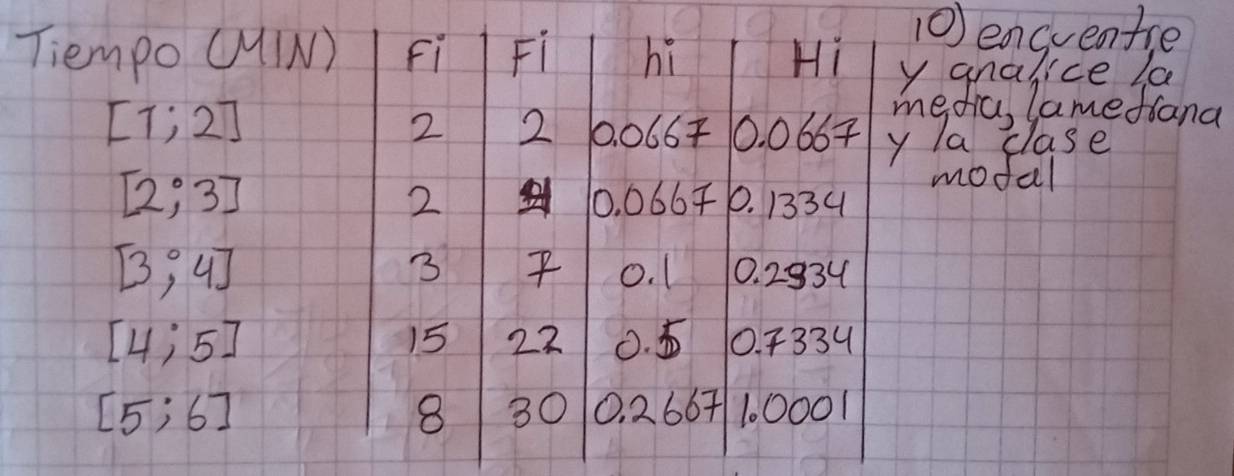 Tiempo (MIN) | Fi | Fi | hi | Hi
[1;2] | 2 | 2 | 0.0667 | 0.0667
[2;3] | 2 | 4 | 0.0667 | 0.1334
[3;4] | 3 | 7 | 0.1 | 0.2334
[4;5] | 15 | 22 | 0.5 | 0.7334
[5;6] | 8 | 30 | 0.2667 | 1.0001
10) encuentre
y analice la
media, la mediana
y la clase
modal